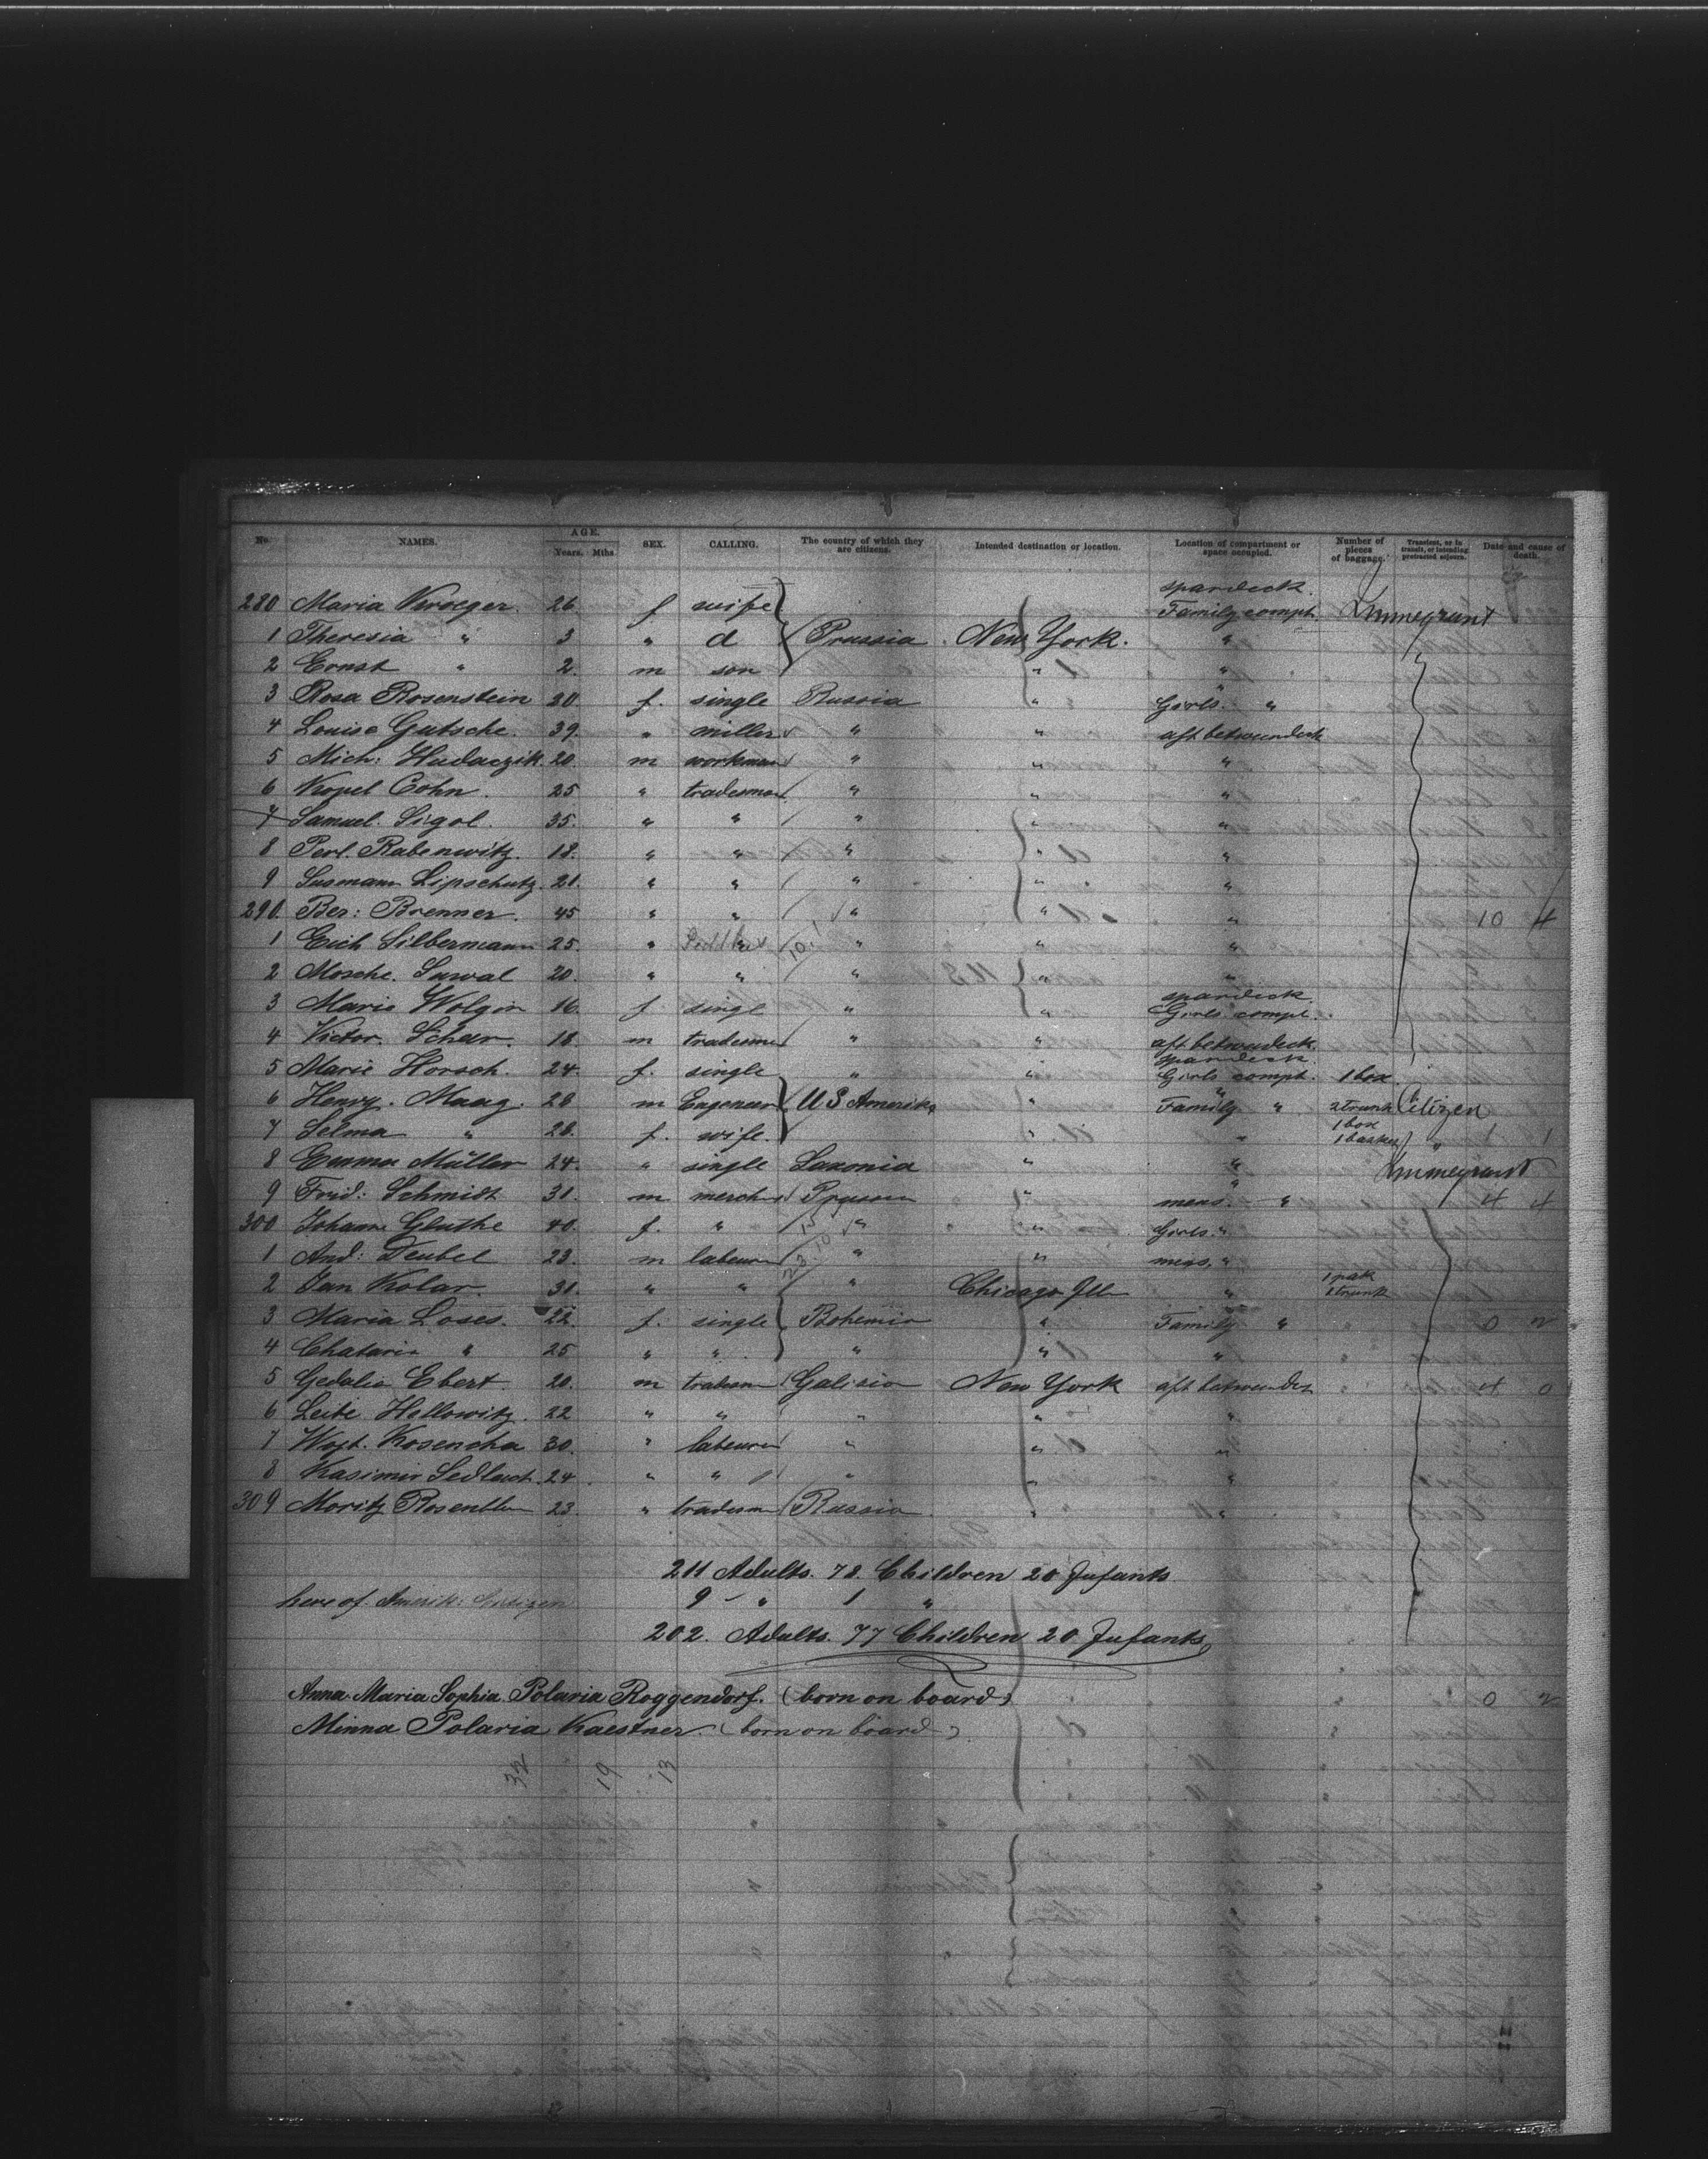 No. NAMES. AGE. Years. Mths. SEX. CALLING. The country of which they are citizens. Intended destination or location. Location of compartment or space occupied. Number of pieces of baggage. Transient, or in transit, or intending protracted sojourn. Date and cause of death.
spardeck.
280 Maria Kroeger. 26. f wife Family compt. Immegrant
1 Theresia " 3 " d Prussia. New York. "
2 Ernst " 2. m son " "
3 Rosa Rosenstein 20. f. single Russia " Girls. "
4 Louise Gutsche. 39. " miller " " aft betweendeck
5 Mich: Hudaczik. 20. m workman " " "
6 Kopel Cohn. 25. " tradesman " " "
7 Samuel. Sigol. 35. " " " " "
8 Perl. Rabenwitz. 18. " " " " "
9 Susmann Lipschutz. 21. " " " " "
290. Ber: Brenner. 45 " " " " " 10 4
1 Erich Silbermann 25. " " " " "
2 Mosche. Suwal 20. " " " " "
spardeck.
3 Marie Wolgin 16. f. singl " " Girls compt.
4 Victor. Scheer. 18. m tradesman " " aft betweendeck.
spardeck
5 Marie Horsch. 24. f. single " " Girls compt. 1 box.
6 Henry. Maag. 28 m Engeneer U S Amerika " Family " 2 trunk Citizen
1 box
7 Selma " 28. f. wife. " " 1 basket "
8 Emma Müller 24. " single Saxonia " " Immegrant
9 Frid: Schmidt 31. m merch Prussia " mens. " 4 4
300 Johanna Gluthe 40. f. " " " Girls. "
1 And: Teubel 23. m labeurer " " mens. "
1 pak
2 Jan Kolar. 31. " " " Chicago Ill " 1 trunk
3 Maria Loses. 22. f. single Bohemia " Family " 0 2
4 Chatarin " 25 " " " " "
5 Gedalie Ebert. 20. m tradesm Galicia New York aft betweendeck 4 0
6 Leibe Hellowitz. 22 " " " " "
7 Wojt. Kosencha 30. " labeurer " " "
8 Kasimir Sedlach. 24. " " " " "
309 Moritz Rosenblum 23. " tradesm Russia. " "
211 Adults. 78. Children 20 Jnfants
here of. Amerik: 9 " 1 "
202. Adults. 77 Children 20 Jnfants
Anna. Maria Sophia. Polaria Roggendorf. (born on board)
Minna Polaria Kaestner. (born on board)
32 19 13